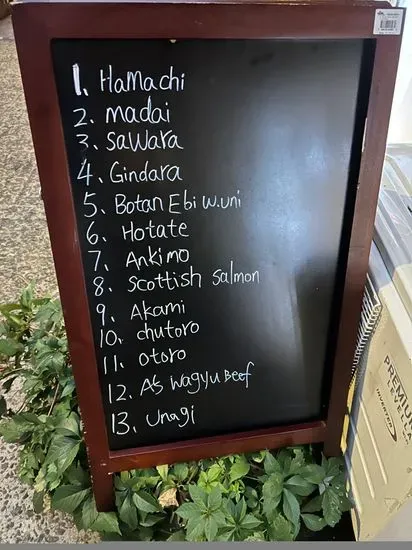 1. HaMachi
2. madai
3. sawara
4. Gindara
5. Botan Ebi w.uni
6. Hotate
7. Ankimo
8. scottish salmon
9. Akami
10. chutoro
11. otoro
12. A5 wagyu Beef
13. Unagi
PREMIUM
LEVEL
INVERTER